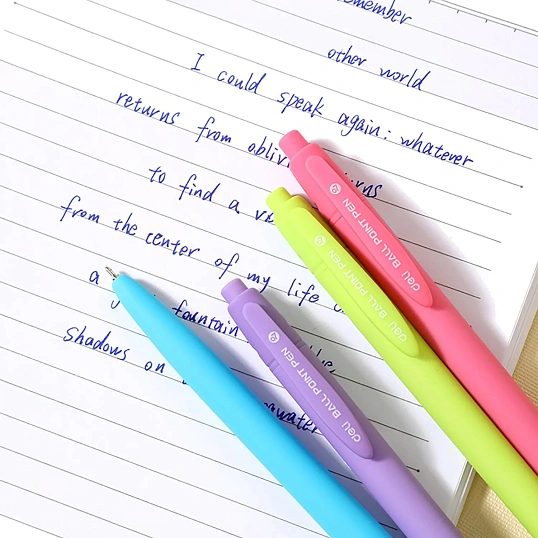 remember
other world
I could speak again: whatever
returns from
to find a
from the center of my life
a fountain
Shadows on
deli BALL POINT PEN
deli BALL POINT PEN
deli BALL POINT PEN